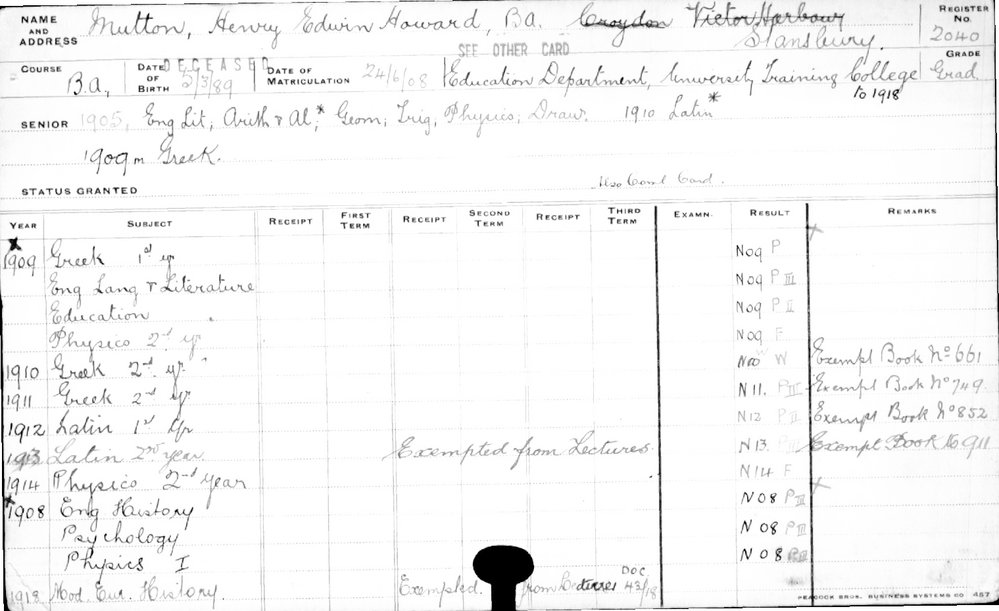 NAME AND ADDRESS Mutton, Henry Edwin Howard, B.A. Croydon Victor Harbour REGISTER No. 2040
SEE OTHER CARD Stansbury.
COURSE B.A., DATE OF BIRTH DECEASED 5/3/89 DATE OF MATRICULATION 24/6/08 Education Department, University Training College to 1918 GRADE Grad.
SENIOR 1905, Eng Lit, Arith & Al,* Geom; Trig, Physics, Draw. 1910 Latin*
1909 m Greek.
STATUS GRANTED Also Coml Card.
YEAR SUBJECT RECEIPT FIRST TERM RECEIPT SECOND TERM RECEIPT THIRD TERM EXAMN. RESULT REMARKS
x +
1909 Greek 1st yr N09 P
Eng Lang & Literature N09 P III
Education " N09 P II
Physics 2nd yr N09 F
1910 Greek 2nd yr " W Exempt Book No 661
1911 Greek 2nd yr N11. P III Exempt Book No 749.
1912 Latin 1st yr N12 P II Exempt Book No 852
1913 Latin 2nd year Exempted from Lectures. N13 Exempt Book No 911
1914 Physics 2nd year N14 F
x +
1908 Eng History N 08 P III
Psychology N 08 P III
Physics I N 08
1918 Mod. Eur. History. Exempted. from Lectures DOC 43/18
PEACOCK BROS. BUSINESS SYSTEMS CO 457